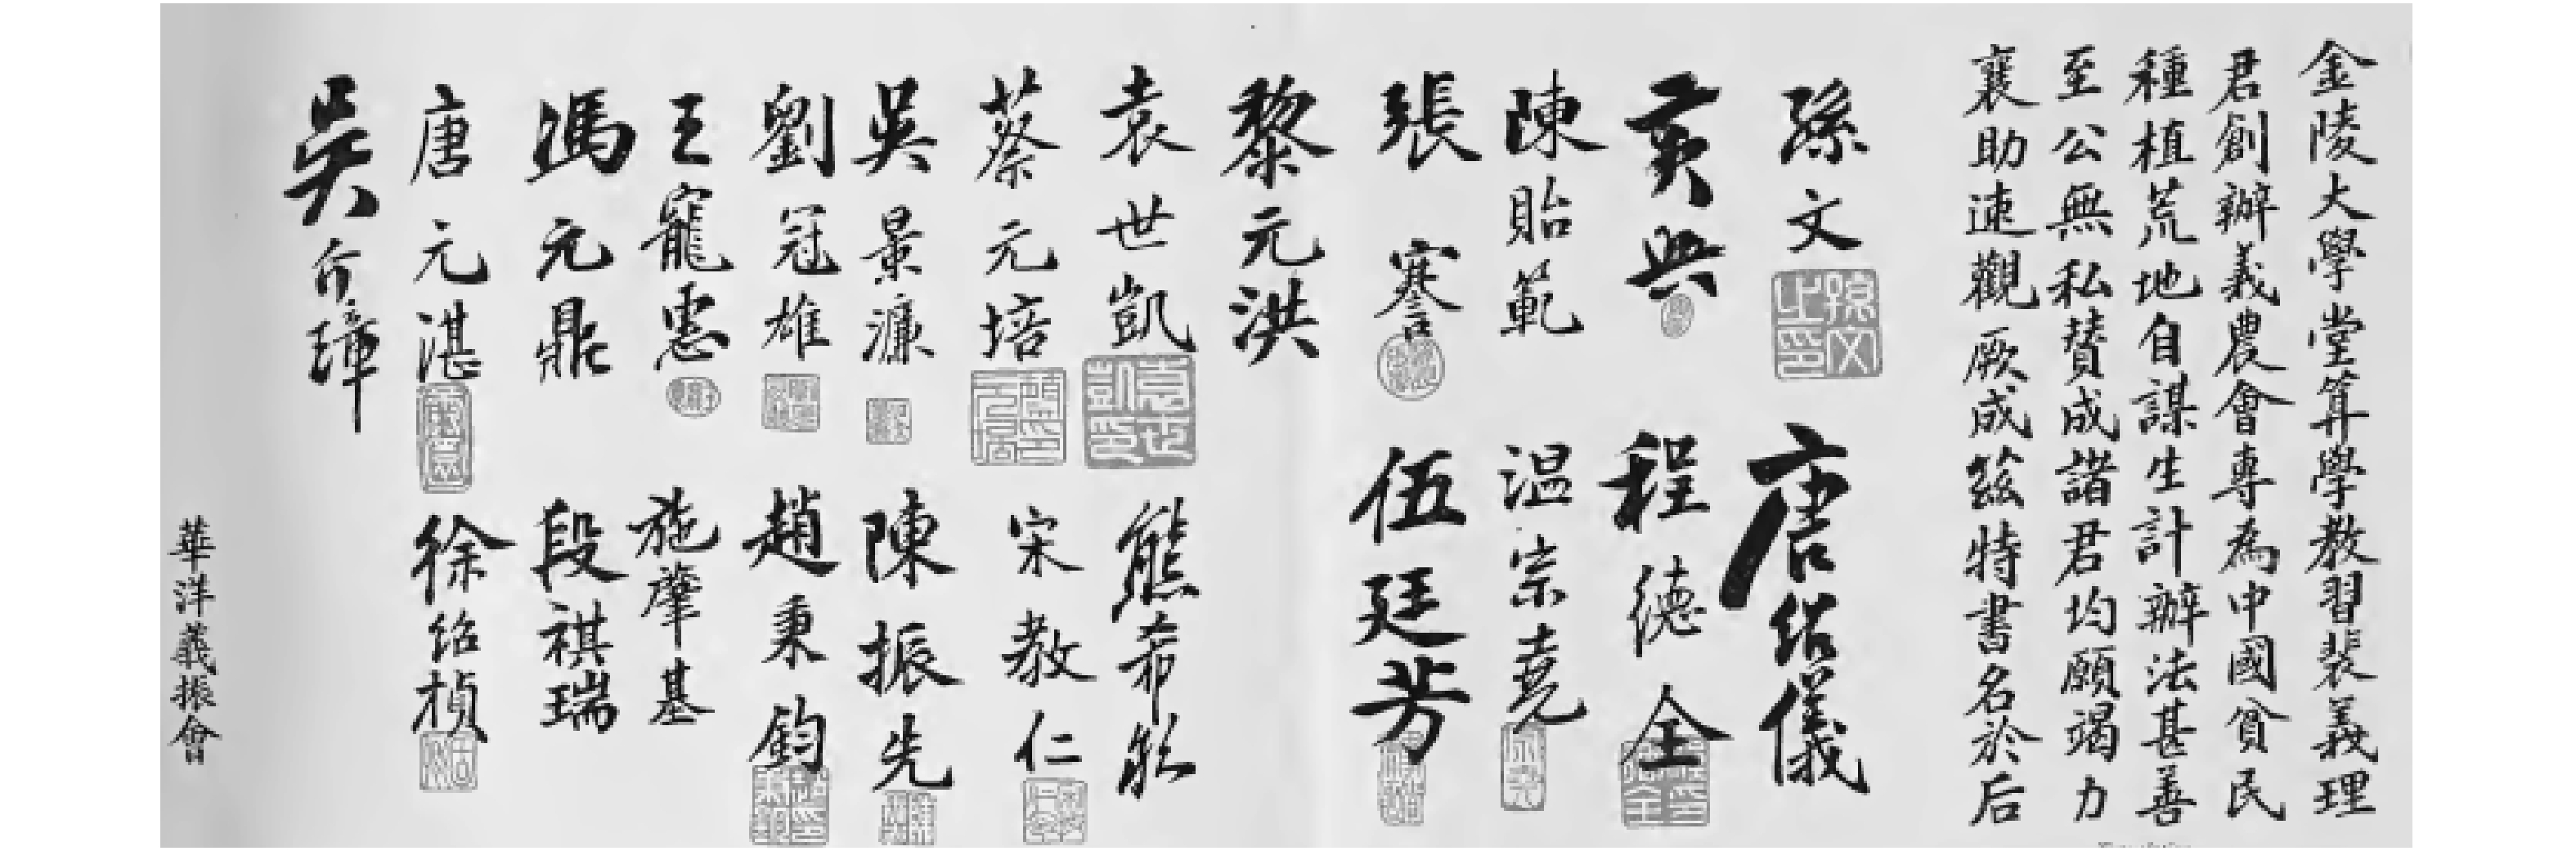 金陵大學堂算學教習裴義理
君創辦義農會專為中國貧民
種植荒地自謀生計辦法甚善
至公無私贊成諸君均願竭力
襄助速觀厥成茲特書名於后
孫文 孫文之印 唐紹儀
黃興 程德全
陳貽範 溫宗堯
張謇 伍廷芳
黎元洪
袁世凱 袁世凱印 熊希齡
蔡元培 宋教仁
吳景濂 陳振先
劉冠雄 趙秉鈞
王寵惠 施肇基
馮元鼎 段祺瑞
唐元湛 徐紹楨
吳介璋
華洋義振會